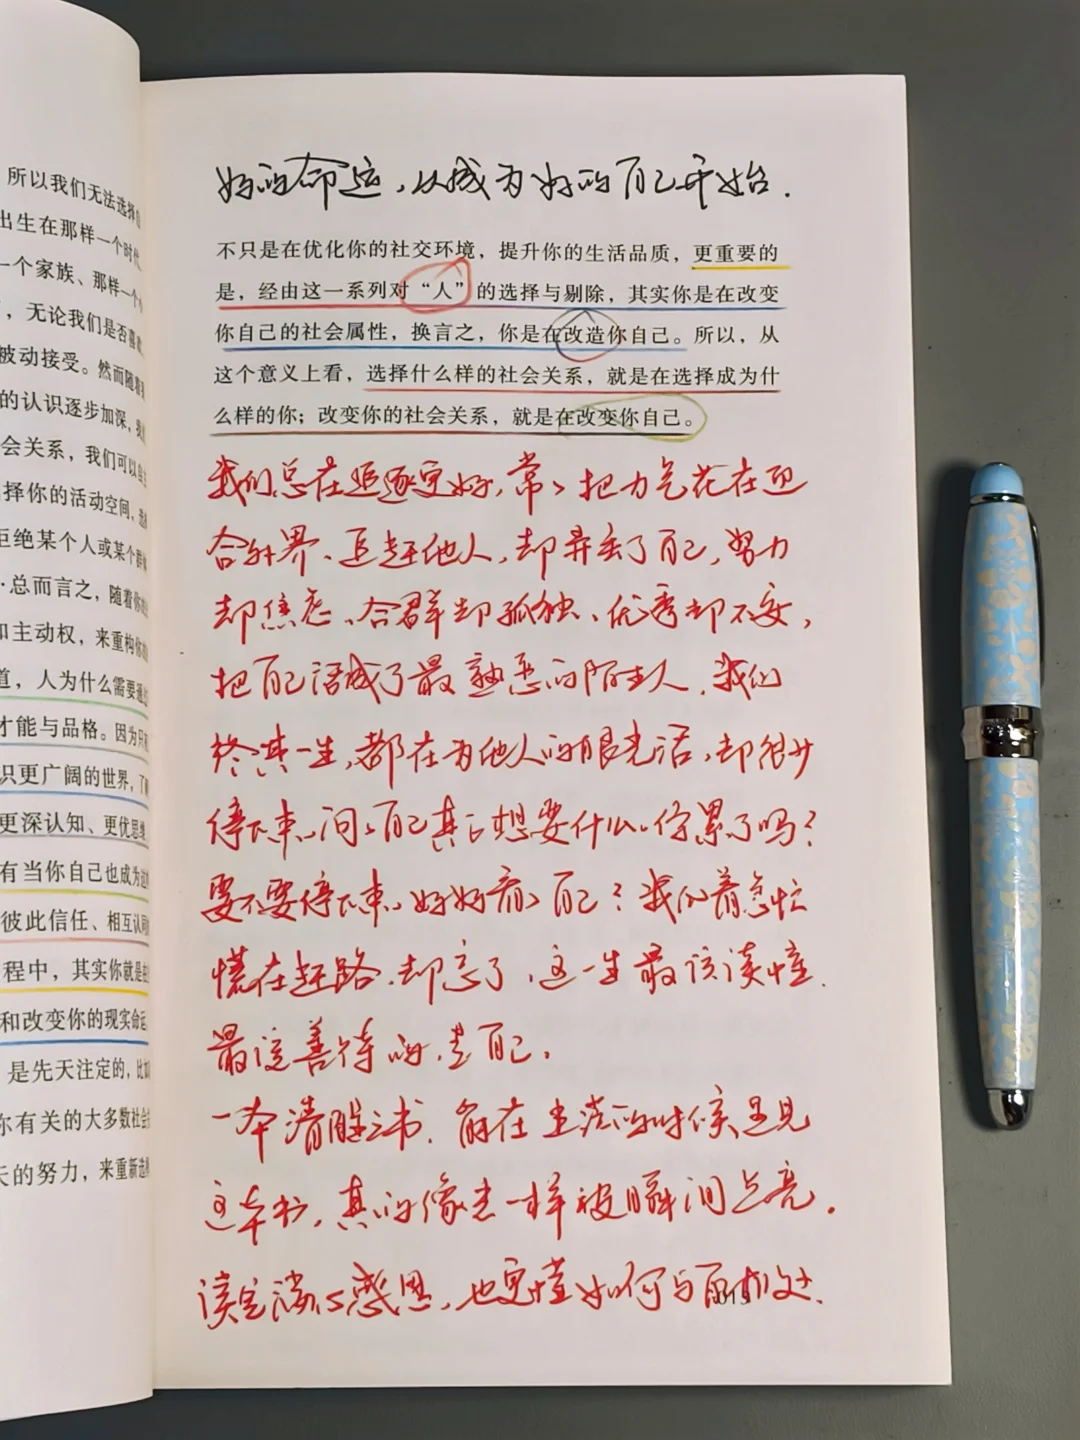 所以我们无法选择自
出生在那样一个时代
一个家族、那样一个
，无论我们是否喜欢
被动接受。然而随着
的认识逐步加深，我
会关系，我们可以
择你的活动空间，
拒绝某个人或某个群
·总而言之，随着你
和主动权，来重构你
道，人为什么需要
才能与品格。因为只
识更广阔的世界，了
更深认知、更优思维
有当你自己也成为
彼此信任、相互认同
程中，其实你就是在
和改变你的现实命运
是先天注定的，比如
你有关的大多数社会
天的努力，来重新选
好的命运，从成为好的自己开始.
不只是在优化你的社交环境，提升你的生活品质，更重要的
是，经由这一系列对“人”的选择与剔除，其实你是在改变
你自己的社会属性，换言之，你是在改造你自己。所以，从
这个意义上看，选择什么样的社会关系，就是在选择成为什
么样的你；改变你的社会关系，就是在改变你自己。
我们总在追逐更好，常々把力气花在迎
合外界、追赶他人，却弄丢了自己，努力
却焦虑、合群却孤独、优秀却不安，
把自己活成了最熟悉的陌生人.我们
终其一生，都在为他人的眼光活，却很少
停下来、问々自己真正想要什么。你累了吗？
要不要停下来、好好看々自己？我们着急忙
慌在赶路.却忘了，这一生最该读懂.
最该善待的，是自己.
一本清醒之书.能在生活的时候遇见
这本书，真的像光一样被瞬间点亮.
读完满心感恩，也更懂如何与自己相处.